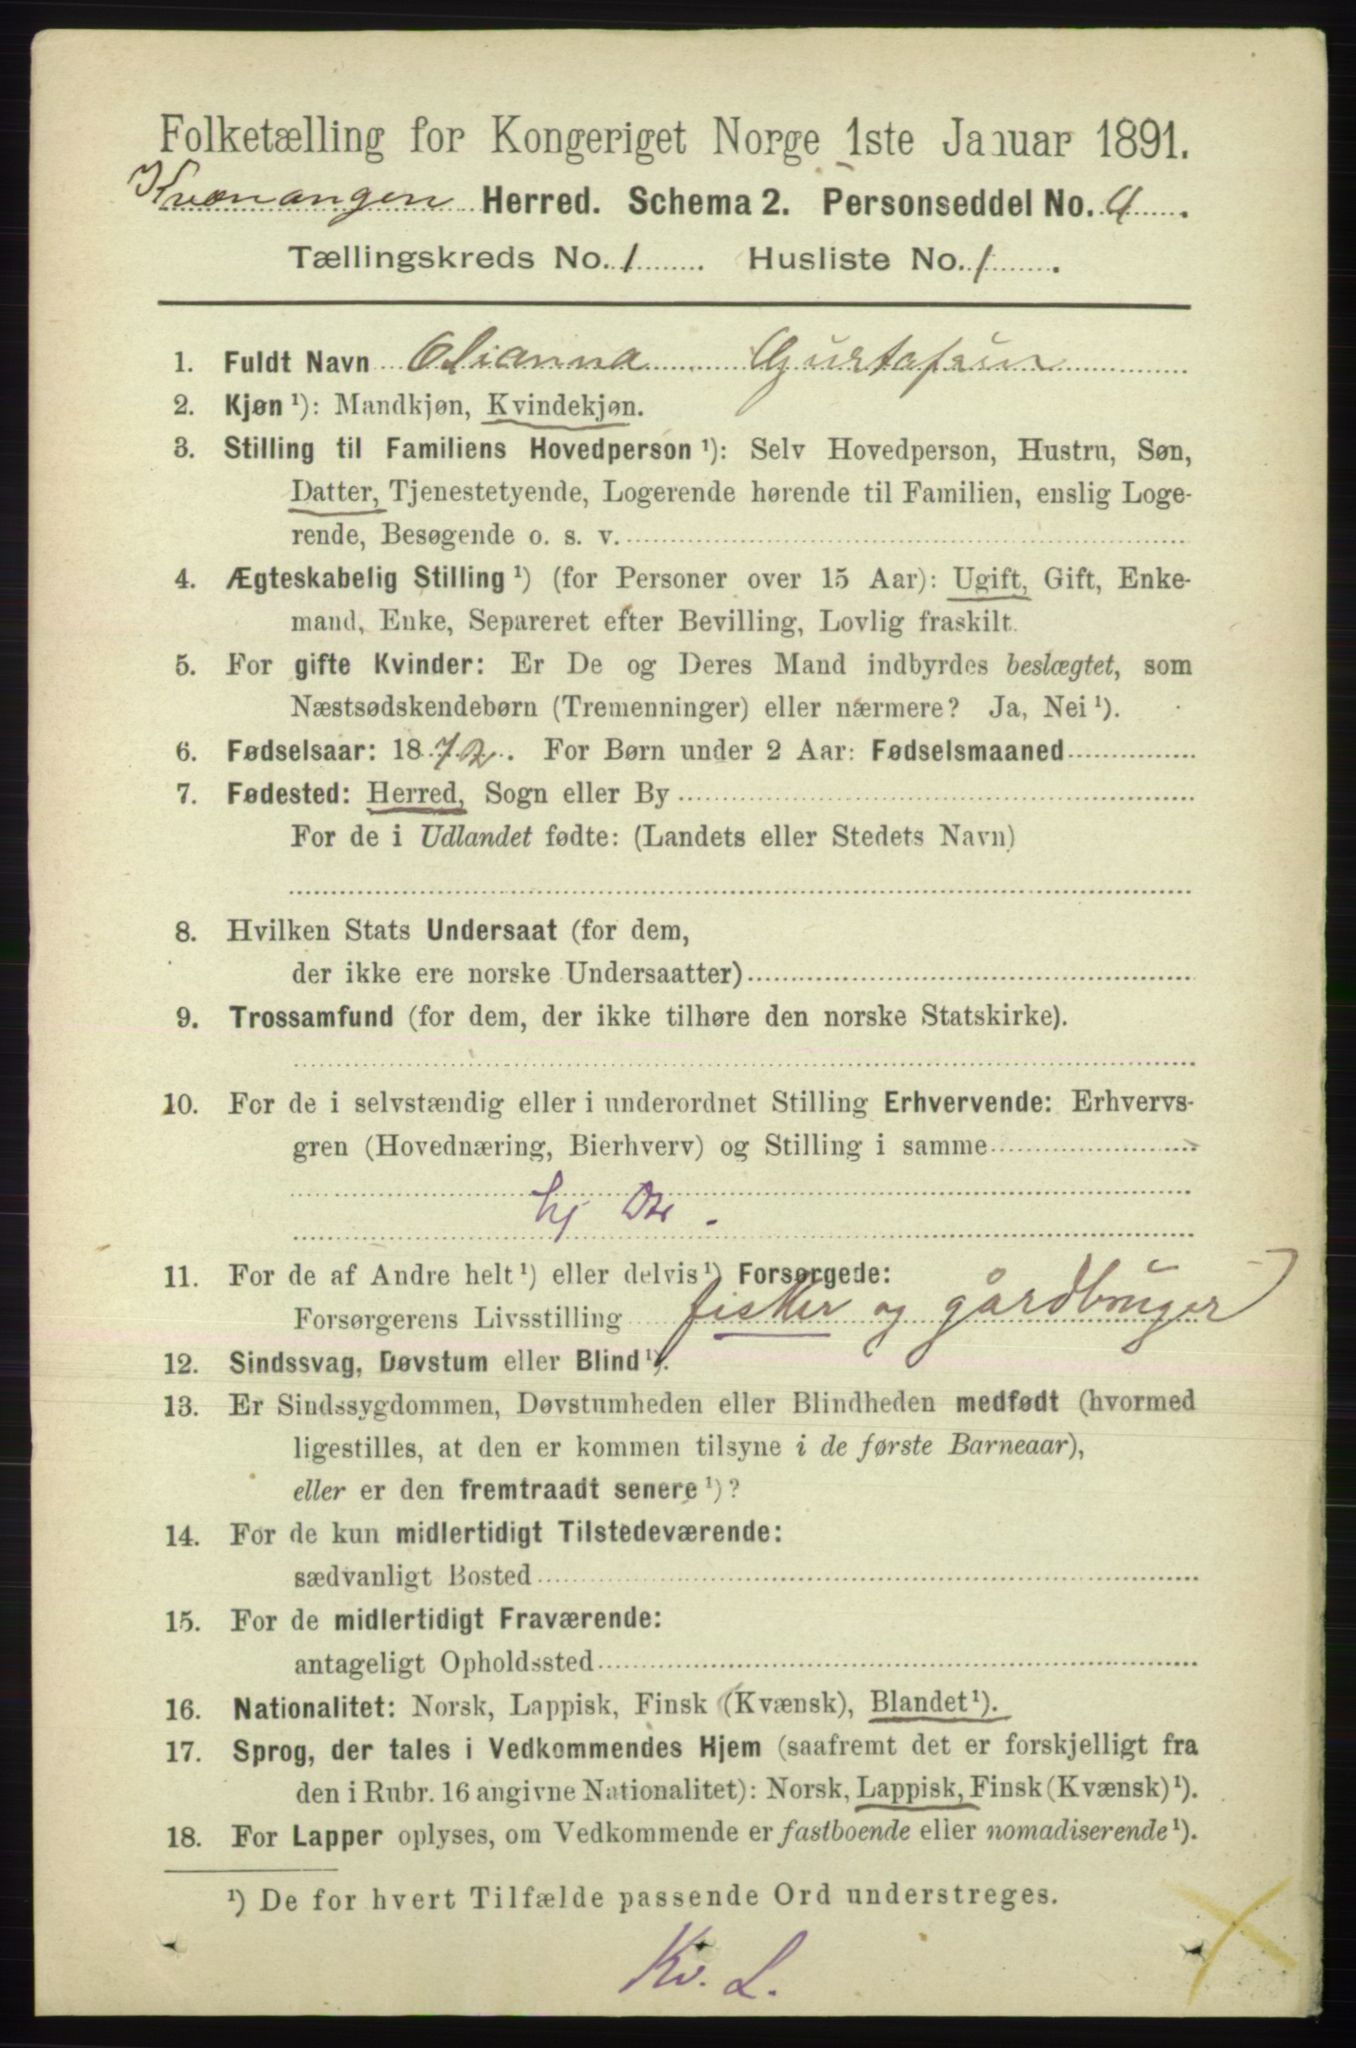 Folketælling for Kongeriget Norge 1ste Januar 1891.
Kvænangen Herred. Schema 2. Personseddel No. 4.
Tællingskreds No. 1. Husliste No. 1.
1. Fuldt Navn Olianna Gustafsen
2. Kjøn ¹): Mandkjøn, Kvindekjøn.
3. Stilling til Familiens Hovedperson ¹): Selv Hovedperson, Hustru, Søn,
Datter, Tjenestetyende, Logerende hørende til Familien, enslig Loge-
rende, Besøgende o. s. v.
4. Ægteskabelig Stilling ¹) (for Personer over 15 Aar): Ugift, Gift, Enke-
mand, Enke, Separeret efter Bevilling, Lovlig fraskilt.
5. For gifte Kvinder: Er De og Deres Mand indbyrdes beslægtet, som
Næstsødskendebørn (Tremenninger) eller nærmere? Ja, Nei ¹).
6. Fødselsaar: 1872. For Børn under 2 Aar: Fødselsmaaned
7. Fødested: Herred, Sogn eller By
For de i Udlandet fødte: (Landets eller Stedets Navn)
8. Hvilken Stats Undersaat (for dem,
der ikke ere norske Undersaatter)
9. Trossamfund (for dem, der ikke tilhøre den norske Statskirke).
10. For de i selvstændig eller i underordnet Stilling Erhvervende: Erhvervs-
gren (Hovednæring, Bierhverv) og Stilling i samme
11. For de af Andre helt ¹) eller delvis ¹) Forsørgede:
Forsørgerens Livsstilling fisker og gårdbruger
12. Sindssvag, Døvstum eller Blind ¹).
13. Er Sindssygdommen, Døvstumheden eller Blindheden medfødt (hvormed
ligestilles, at den er kommen tilsyne i de første Barneaar),
eller er den fremtraadt senere ¹)?
14. For de kun midlertidigt Tilstedeværende:
sædvanligt Bosted
15. For de midlertidigt Fraværende:
antageligt Opholdssted
16. Nationalitet: Norsk, Lappisk, Finsk (Kvænsk), Blandet ¹).
17. Sprog, der tales i Vedkommendes Hjem (saafremt det er forskjelligt fra
den i Rubr. 16 angivne Nationalitet): Norsk, Lappisk, Finsk (Kvænsk) ¹).
18. For Lapper oplyses, om Vedkommende er fastboende eller nomadiserende ¹).
¹) De for hvert Tilfælde passende Ord understreges.
Kv. L.